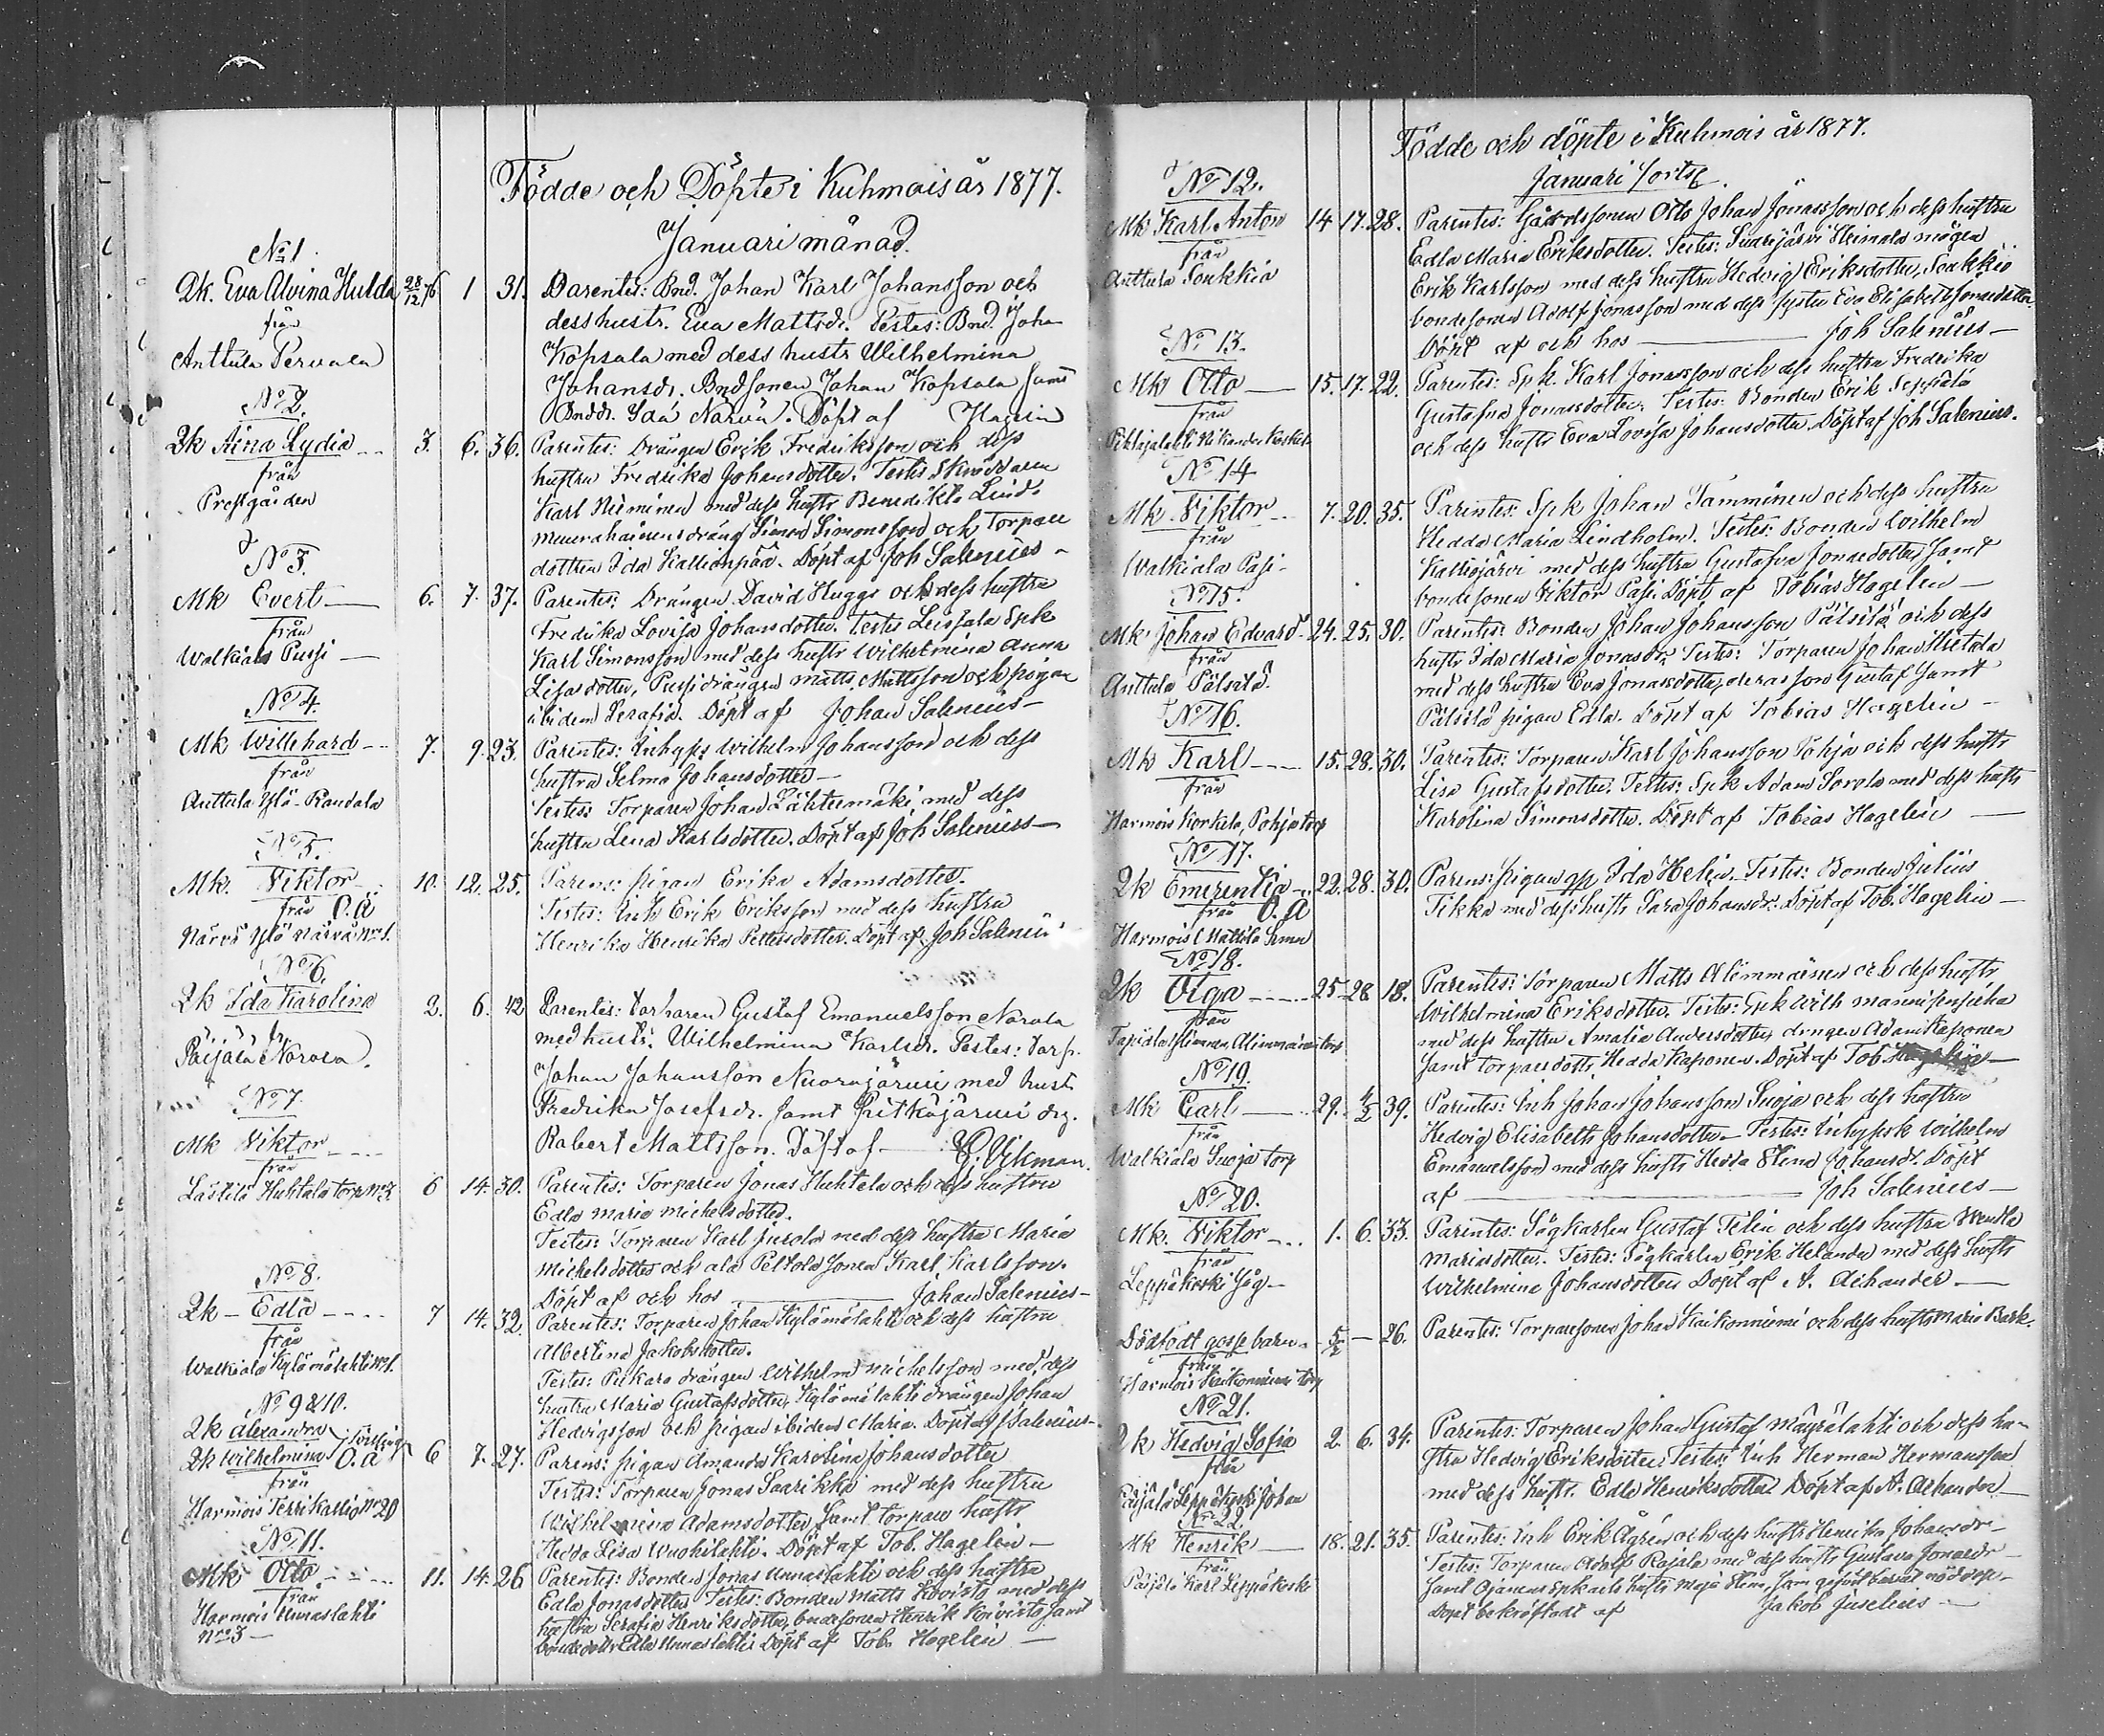 Födde och Döpte i Kuhmois år 1877.
Januari månad.
No 1
Qk. Eva Alvina Hulda 28/12 76 1 31.
från
Anttula Pervala
Parentes: Bnd. Johan Karl Johansson och
dess hustr. Eva Mattsdr. Testes: Bnd. Joha
Kopsala med dess hustr Wilhelmina
Johansdr. Bndsonen Johan Kopsala samt
Bnddr. Ida Närvä. Döpt af Hagelin
No 2.
Qk Aina Lydia 3. 6. 36.
från
Prestgården
Parentes: Drängen Erik Fredriksson och dess
hustru Fredrika Johansdotter. Testes Skräddaren
Karl Nieminen med dess hustr Benedikta Lind.
dräng Simon Simonsson och Torpare
dottren Ida Kallionpää. Döpt af Joh Salenius
No 3.
Mk Evert 6. 7. 37.
från
Walkiala Pussi
Parentes: Drängen David Huggs och dess hustru
Fredrika Lovisa Johansdotter. Testes Leissala Spk
Karl Simonsson med dess hustr Wilhelmina Anna
Lisasdotter, Pussidrängen Matts Mattsson och pigan
ibidem Serafia. Döpt af Johan Salenius
No 4.
Mk Willehard 7. 9. 23.
från
Anttula Ylä-Raudala
Parentes: Inhyss Wilhelm Johansson och dess
hustru Selma Johansdotter
Testes Torparen Johan Lähteemäki med dess
hustru Lena Karlsdotter. Döpt af Joh Salenius
No 5.
Mk. Viktor 10. 12. 25.
från O.ä
Närvä Ylä Närvä No 1.
Parens: pigan Erika Adamsdotter.
Testes: Inh Erik Eriksson med dess hustru
Henrika Henrika Pettersdotter. Döpt af Joh Salenius
No 6.
Qk Ida Karolina 2. 6. 42
från
Päijälä Norola.
Parentes: torparen Gustaf Emanuelsson Norola
med hustr. Wilhelmina Karlsdr. Testes: torp.
Johan Johansson Nuorajärvi med hust
Fredrika Josefsdr. samt Pitkäjärvi drg.
Robert Mattsson. Döpt af E. Ekman.
No 7.
Mk Viktor
från
Lästilä Huhtala torp No 3 6 14. 30.
Parentes: Torparen Jonas Huhtala och dess hustru
Edla Maria Michelsdotter.
Testes: Torparen Karl Jusola med dess hustru Maria
Michelsdotter och ala Peltola sonen Karl Karlsson.
Döpt af och hos Johan Salenius
No 8.
Qk Edla 7 14. 32.
från
Walkiala Kylämälahti No 1.
Parentes: Torparen Johan Kylämälahti och dess hustru
Albertina Jakobsdotter.
Testes: Pukara drängen Wilhelm Michelsson med dess
hustru Maria Gustafsdotter, Kylämälahti drängen Johan
Hedvigsson och pigan ibidem Maria. Döpt af J Salenius
No 9 & 10.
Qk Alexandra
Qk Wilhelmina Tvillingar O.ä 6 7. 27.
från
Harmois Terrikallio No 20
Parens: pigan Amanda Karolina Johansdotter
Testes: Torparen Jonas Saarikko med dess hustru
Wilhelmina Adamsdotter, samt torpare hustr
Hedda Lisa Wuohilahti. Döpt af Tob. Hagelin
No 11.
Mk Otto 11. 14. 26
från
Harmois Unnaslahti
No 3
Parentes: Bonden Jonas Unnaslahti och dess hustru
Edla Jonasdotter Testes: Bonden Matts Koivisto med dess
hustru Serafia Henriksdotter, bondesonen Henrik Koivisto samt
bondedottr Edla Unnaslahti Döpt af Tob. Hagelin
Födde och döpte i Kuhmois år 1877.
Januari forts.
No 12.
Mk Karl Anton 14 17. 28.
från
Anttula Soukkio
Parentes: Gårdssonen Otto Johan Jonasson och dess hustru
Edla Maria Eriksdotter. Testes: Heimola mågen
Erik Karlsson med dess hustru Hedvig Eriksdotter, Soukkio
bondesonen Adolf Jonasson med dess syster Eva Elisabeth Jonasdotter.
Döpt af och hos Joh Salenius
No 13.
Mk Otto 15. 17. 22.
från
Parentes: Spk. Karl Jonasson och dess hustru Fredrika
Gustafva Jonasdotter. Testes: Bonden Erik Seppälä
och dess hustr Eva Lovisa Johansdotter. Döpt af Joh Salenius.
No 14
Mk Viktor 7. 20. 35.
från
Walkiala Pasi
Parentes: Spk Johan Tamminen och dess hustru
Hedda Maria Lindholm. Testes: Bonden Wilhelm
Kalliojärvi med dess hustru Gustafva Jonasdotter samt
bondesonen Viktor Pasi. Döpt af Tobias Hagelin
No 15.
Mk Johan Edvard 24. 25. 30.
från
Anttula Pälsilä.
Parentes: Bonden Johan Johansson Pälsilä och dess
hustr Ida Maria Jonasdr. Testes: Torparen Johan Hietala
med dess hustru Eva Jonasdotter, deras son Gustaf samt
Pälsilä pigan Edla. Döpt af Tobias Hagelin
No 16.
Mk Karl 15. 28. 30.
från
Harmois Korkila, Pohja torp
Parentes: Torparen Karl Johansson Pohja och dess hustr
Lisa Gustafsdotter. Testes: Spk Adam Sorola med dess hustr
Karolina Simonsdotter. Döpt af Tobias Hagelin
No 17.
Qk Emerentia 22. 28. 30.
från O.ä
Harmois Mattila
Parens: pigan Ida Helin. Testes: Bonden Julius
Tikka med dess hustr Sara Johansdr. Döpt af Tob. Hagelin
No 18.
Qk Olga 25 28 18.
från
Parentes: Torparen Matts Alimmainen och dess hustr
Wilhelmina Eriksdotter. Testes: Spk Wilh
med dess hustru Amalia Andersdotter, drengen Adam Kaponen
samt torparedottr Hedda Kaponen. Döpt af Tob. Hagelin
No 19.
Mk Carl 29. 4/2 39.
från
Walkiala Suoja torp
Parentes: Inh Johan Johansson Suoja och dess hustru
Hedvig Elisabeth Johansdotter Testes: Wilhelm
Emanuelsson med dess hustr Hedda Stina Johansdr. Döpt
af Joh Salenius
No 20.
Mk. Viktor 1. 6. 33.
från
Leppäkoski såg
Parentes: Sågkarlen Gustaf Felin och dess hustru Wendla
Mariasdotter. Testes: Sågkarlen Erik Helander med dess hustr
Wilhelmina Johansdotter Döpt af A. Achander
Dödfödt gosse barn 5/2 26.
från
Harmois Kaikonniemi torp
Parentes: Torparesonen Johan Kaikonniemi och dess hustr Maria Bark.
No 21.
Qk Hedvig Sofia 2. 6. 34.
från
Päijälä Leppäkoski Johan
Parentes: Torparen Johan Gustaf och dess hu-
stru Hedvig Eriksdotter. Testes: Inh Herman Hermansson
med dess hustr. Edla Henriksdotter Döpt af A. Achander
No 22.
Mk Henrik 18. 21. 35.
från
Päijälä Karl Leppäkoski
Parentes: Inh Erik Ågrén och dess hustr Henrika Johansdr
Testes: Torparen Adolf Rajala med dess hustr Gustava Jonasdr
samt hustr Maja Stina,
Döpt bekräftadt af Jakob Juselius